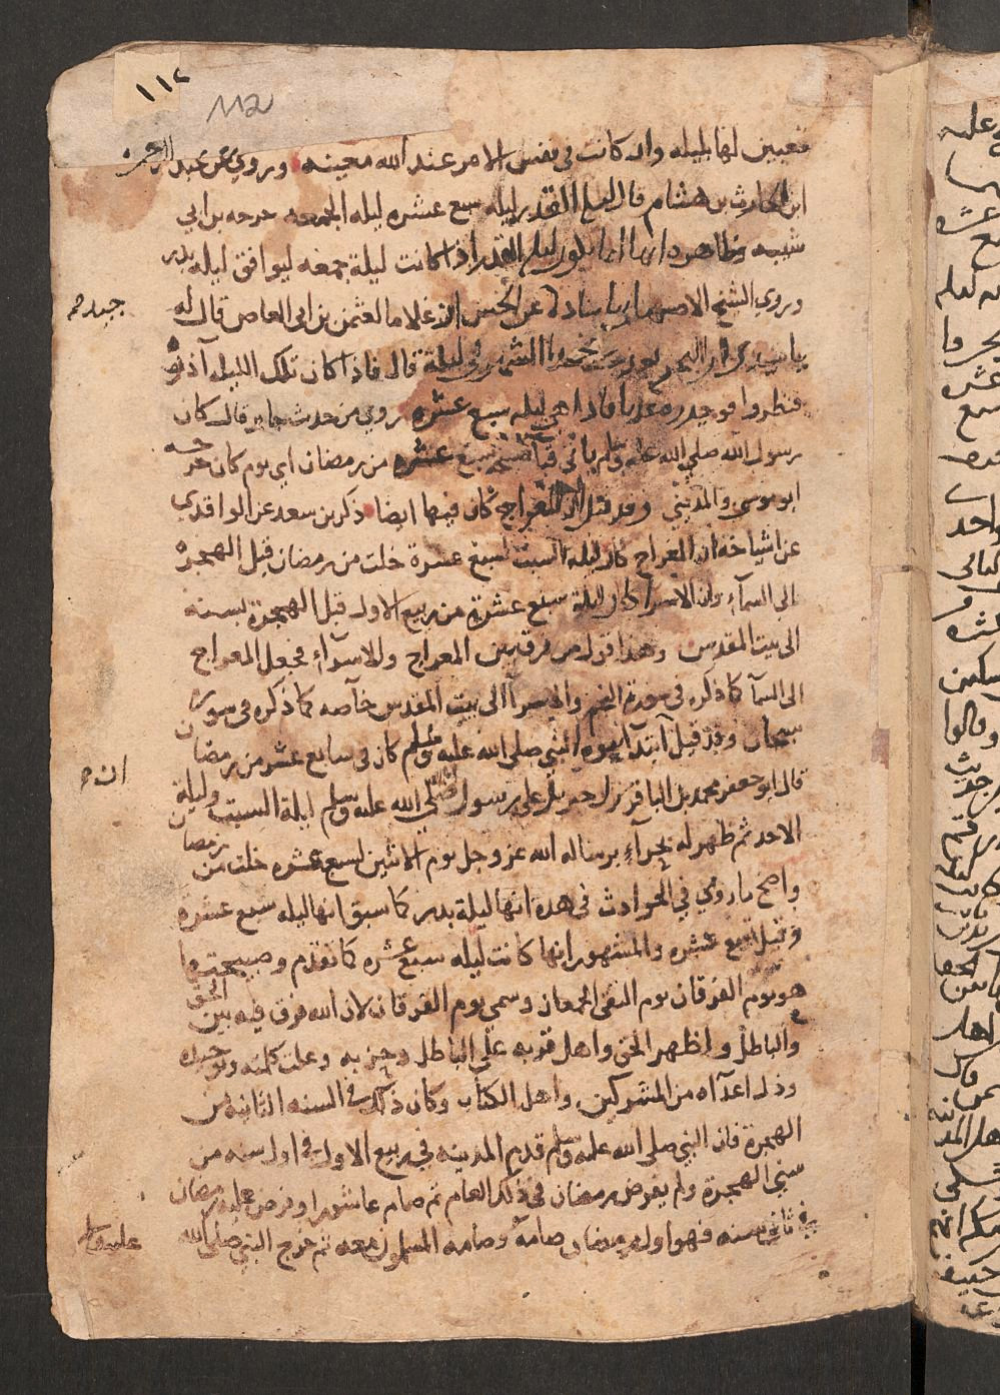 ١١٢
112
فتعيين لها بليله وان كانت في نفس الامر عند الله معينه وروي عن عبد الرحمن
ابن الحارث بن هشام قال ليله القدر ليله سبع عشره ليله الجمعه خرجه بن ابي
شيبه وظاهره انها انما تكون ليله القدر اذا كانت ليلة جمعه ليوافق ليله بدر
وروي الشيخ الاصبهاني باسناده عن الحسن ان غلاما لعثمن بن ابي العاص قال له
ياسيدي ان البحر يعذب في الشهر في ليلة قال فاذا كان تلك الليله آذني
فنظروا فوجدوه عذبا فاذا هي ليله سبع عشره وروي من حديث جابر قال كان
رسول الله صلي الله عليه وسلم ياتي قبا صبيحه سبع عشره من رمضان اي يوم كان خرجه
ابو موسي والمديني وقد قيل ان المعراج كان فيها ايضا ذكر بن سعد عن الواقدي
عن اشياخه ان المعراج كان ليله السبت لسبع عشرة خلت من رمضان قبل الهجره
الى السمآء وان الاسرا كان ليلة سبع عشرة من ربيع الاول قبل الهجرة بسنه
الى بيت المقدس وهذا قول من فرق بين المعراج والاسرآء فجعل المعراج
الى السمآ كما ذكره في سورة النجم والاسرآ الى بيت المقدس خآصه كما ذكره في سورة
سبحان وقد قيل آبتدآ نبوه النبي صلى الله عليه وسلم كان في سابع عشر من رمضان
قال ابو جعفر محمد بن الباقر نزل جبريل على رسول الله صلي الله عليه وسلم ليلة السبت وليلة
الاحد ثم ظهر له بحرآء برساله الله عز وجل يوم الاثنين لسبع عشره خلت من رمضان
واصح ما روي في الحوادث في هذه انها ليلة بدر كما سبق انها ليله سبع عشره
وقيل تسع عشره والمشهور انها كانت ليله سبع عشره كما تقدم وصبيحتها
هو يوم الفرقان يوم التقى الجمعان وسمي يوم الفرقان لان الله فرق فيه بين الحق
والباطل واظهر الحق واهل قربه علي الباطل وحزبه وعلت كلمته وتوحيده
وذل اعدآه من المشركين واهل الكتاب وكان ذلك في السنه الثانيه من
الهجرة فان النبي صلى الله عليه وسلم قدم المدينه في ربيع الاول في اول سنه من
سني الهجرة ولم يفرض رمضان في ذلك العام ثم صام عاشورا وفرض عليه رمضان
في ثاني سنه فهو اول رمضان صامه وصامه المسلمون معه ثم خرج النبي صلى الله
عليه وسلم